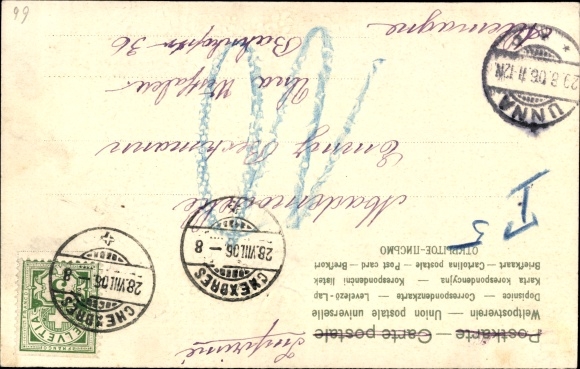 Imprimé
Postkarte — Carte postale
Weltpostverein — Union postale universelle
Dopisnice — Correspondenzkarte — Levelező-Lap -
Karta korespondencyjna — Korespondenční lístek
Briefkaart — Cartolina postale — Post card — Brefkort
ОТКРЫТОЕ-ПИСЬМО
FRANCO
HELVETIA
CHEXBRES
28.VIII.06 - 8
CHEXBRES
28.VIII.06 - 8
T 5
Mademoiselle
Emmy Beckmann
Una Westfalen
Bahnhofstr 36
Allemagne
UNNA
29.8.06.11-12N.
99